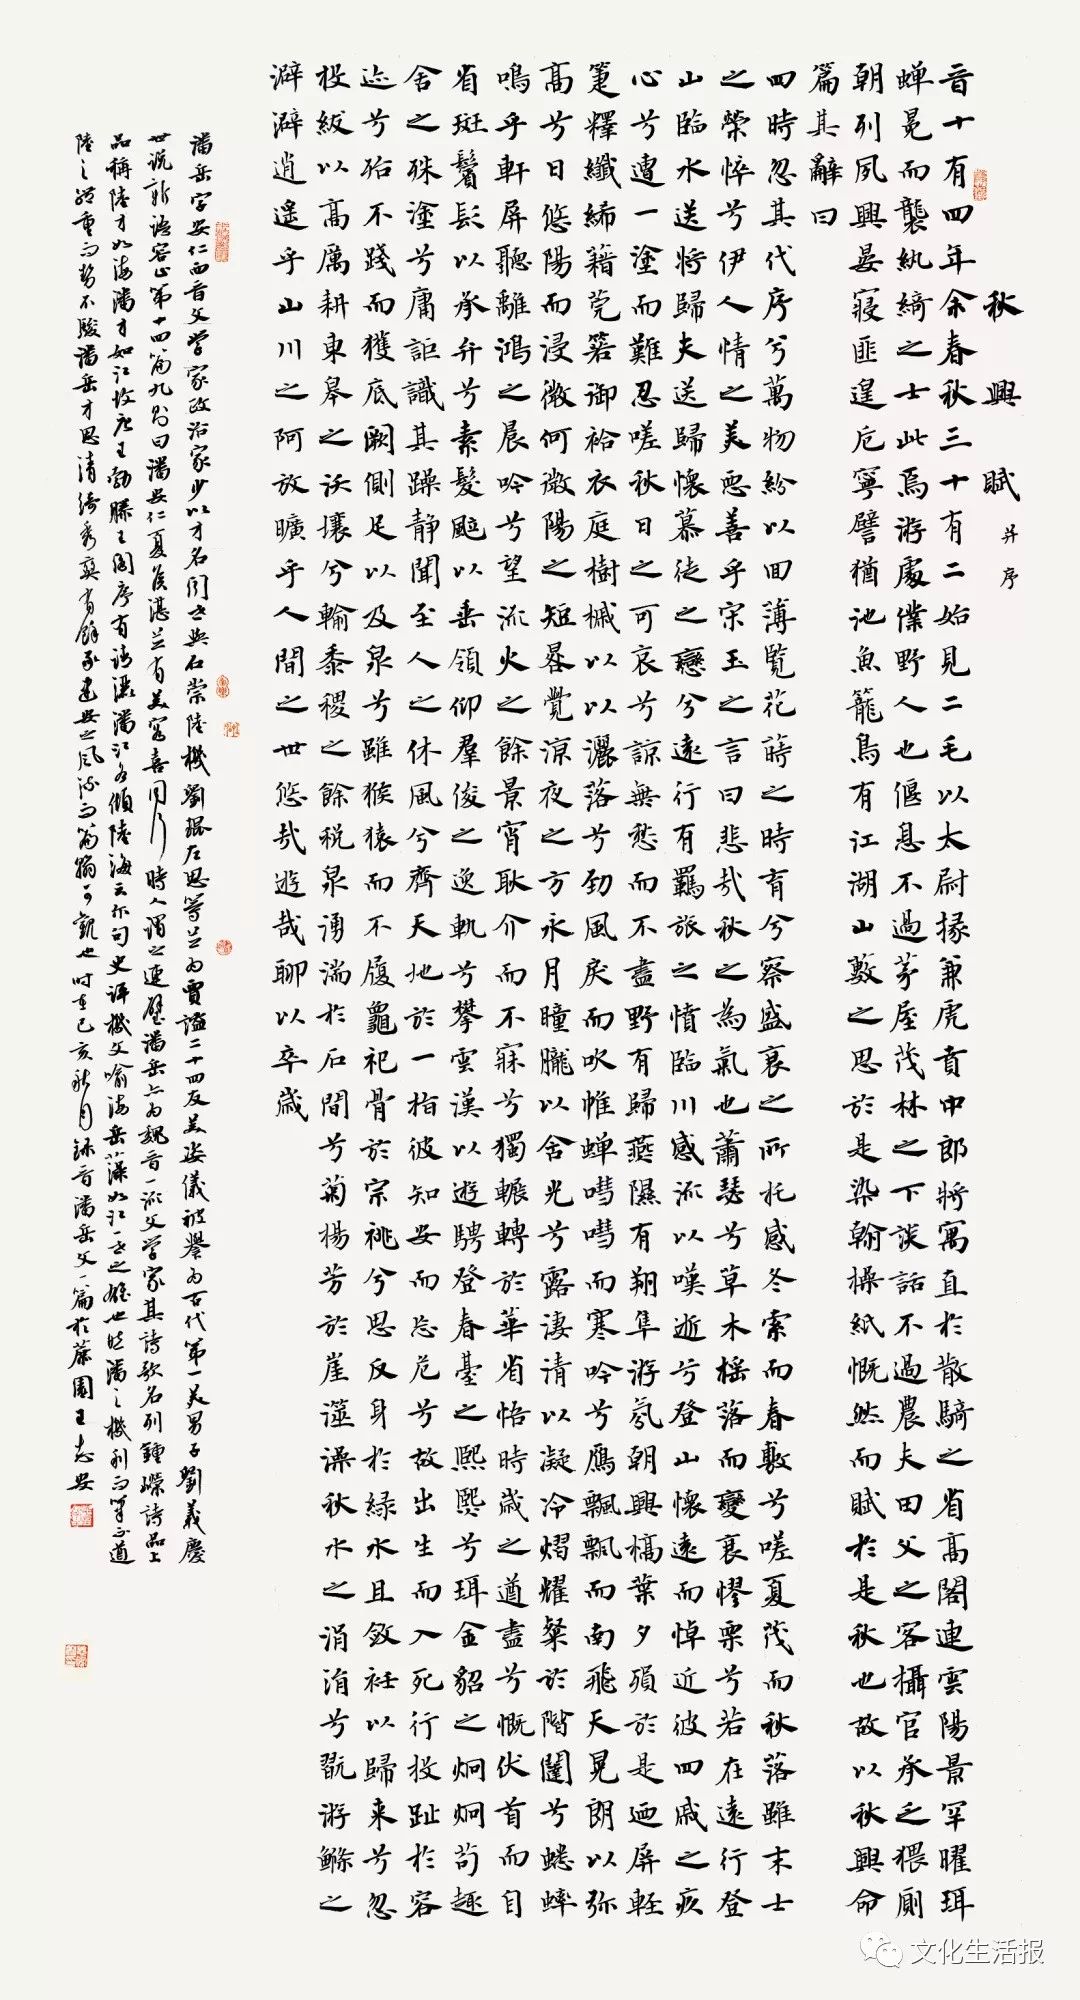 秋興賦 并序
晉十有四年余春秋三十有二始見二毛以太尉掾兼虎賁中郎將寓直於散騎之省高閣連雲陽景罕曜珥
蟬冕而襲紈綺之士此焉游處僕野人也偃息不過茅屋茂林之下談話不過農夫田父之客攝官承乏猥廁
朝列夙興晏寢匪遑厎寧譬猶池魚籠鳥有江湖山藪之思於是染翰操紙慨然而賦於是秋也故以秋興命
篇其辭曰
四時忽其代序兮萬物紛以回薄覽花蒔之時育兮察盛衰之所托感冬索而春敷兮嗟夏茂而秋落雖末士
之榮悴兮伊人情之美惡善乎宋玉之言曰悲哉秋之為氣也蕭瑟兮草木搖落而變衰憀栗兮若在遠行登
山臨水送將歸夫送歸懷慕徒之戀兮遠行有羈旅之憤臨川感流以嘆逝兮登山懷遠而悼近彼四慼之疚
心兮遭一塗而難忍嗟秋日之可哀兮諒無愁而不盡野有歸燕隰有翔隼游氛朝興槁葉夕殞於是迺屏輕
箑釋纖絺籍莞箬御袷衣庭樹槭以灑落兮勁風戾而吹帷蟬嘒嘒而寒吟兮鴈飄飄而南飛天晃朗以弥
高兮日悠陽而浸微何微陽之短晷覺涼夜之方永月曈朧以含光兮露淒清以凝冷熠耀粲於階闥兮蟋蟀
鳴乎軒屏聽離鴻之晨吟兮望流火之餘景宵耿介而不寐兮獨輾轉於華省悟時歲之遒盡兮慨伏首而自
省斑鬢髟以承弁兮素髮颯以垂領仰羣俊之逸軌兮攀雲漢以遊騁登春臺之熙熙兮珥金貂之炯炯苟趣
舍之殊塗兮庸詎識其躁静聞至人之休風兮齊天地於一指彼知安而忘危兮故出生而入死行投趾於容
迹兮殆不踐而獲底闕側足以及泉兮雖猴猿而不履龜祀骨於宗祧兮思反身於緑水且斂衽以歸来兮忽
投紱以高厲耕東皋之沃壤兮輸黍稷之餘税泉湧湍於石間兮菊揚芳於崖澨澡秋水之涓涓兮翫游鯈之
澼澼逍遥乎山川之阿放曠乎人間之世悠哉遊哉聊以卒歲
潘岳字安仁西晉文學家政治家少以才名聞世與石崇陸機劉琨左思等并为賈謐二十四友美姿儀被譽为古代第一美男子劉義慶
世説新語容止第十四篇九則曰潘安仁夏侯湛并有美容喜同行時人謂之連璧潘岳亦为魏晉一流文學家其詩歌名列鍾嶸詩品上
品稱陸才如海潘才如江故唐王勃滕王閣序有請灑潘江各傾陸海云尔句史評機文喻海岳藻如江一世之雄也
時在己亥秋月錄晉潘岳文一篇於
王志安
文化生活报